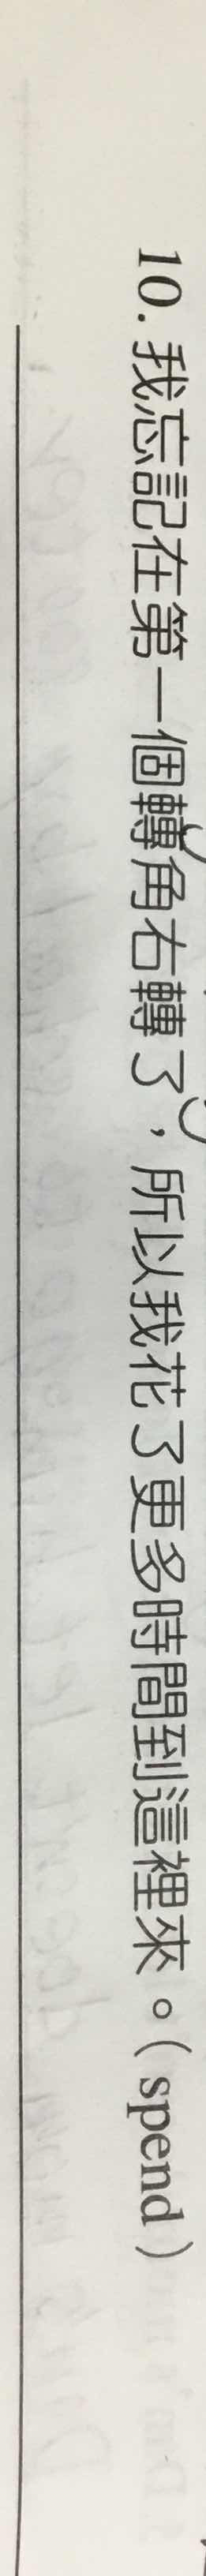 10. 我忘記在第一個轉角右轉了，所以我花了更多時間到這裡來。( spend )